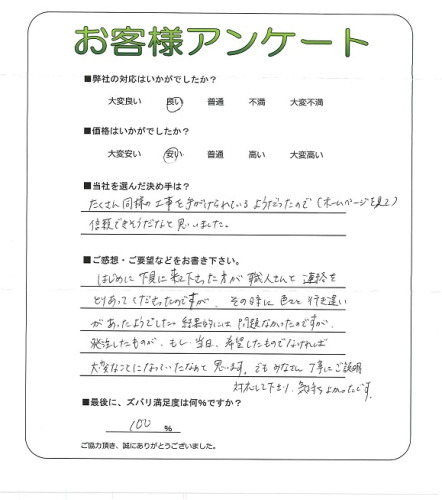 お客様アンケート
■弊社の対応はいかがでしたか？
大変良い 良い 普通 不満 大変不満
■価格はいかがでしたか？
大変安い 安い 普通 高い 大変高い
■当社を選んだ決め手は？
たくさん同様の工事を手がけられているようだったので（ホームページを見て）
信頼できそうだなと思いました。
■ご感想・ご要望などをお書き下さい。
はじめに下見に来て下さった方が職人さんと連絡を
とりあってくださったのですが、その時に色々と行き違い
があったようでした。結果的には問題なかったのですが、
発注したものが、もし当日、希望したものでなければ
大変なことになっていたなあと思います。でもみなさん丁寧にご説明
対応して下さり、気持ちよかったです。
■最後に、ズバリ満足度は何%ですか？
100 %
ご協力頂き、誠にありがとうございました。